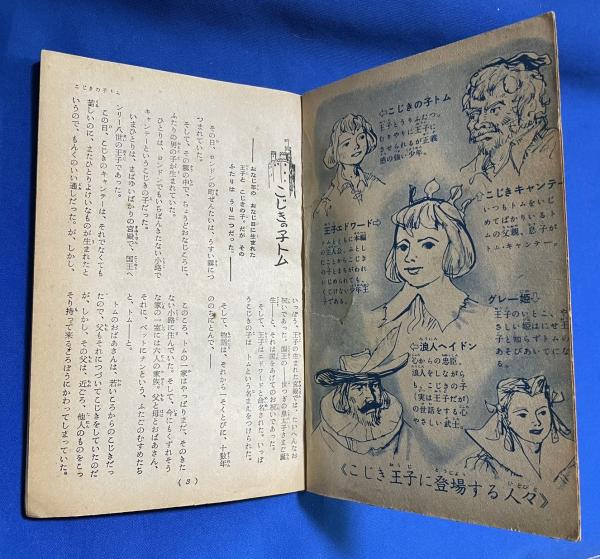 ⇦こじきの子トム
王子とうりふたつ。
むりやりに王子に
させられるが正義
感の強い少年。
⇧こじきキャンテー
いつもトムをいじ
めてばかりいるト
ムの父親。息子が
トム・キャンテー。
王子エドワード⇨
トムとともに本編
の主人公。ふとし
たことからこじき
の子とまちがわれ
いじめられても、
くじけない少年王
子である。
グレー姫⇩
王子のいとこ。や
さしい姫はにせ王
子と知らずトムの
あそびあいてにな
る。
⇦浪人ヘイドン
心からの忠臣。
浪人をしながら
も、こじきの子
(実は王子だが)
の世話をする心
やさしい武士。
《こじき王子に登場する人々》
こじきの子トム
こじきの子トム
――おなじ年の おなじ日に生まれた
王子と こじきの子。だが その
ふたりは うり二つだった。――
その日、ロンドンの町ぜんたいは、うすい霧につ
つまれていた。
そして、その霧の中で、ちょうどおなじころに、
ふたりの男の子が生まれていた。
ひとりは、ロンドンでもいちばんきたない小路で
キャンテーというこじきの子だった。
いまひとりは、まばゆいばかりの宮殿で、国王ヘ
ンリー八世の王子であった。
この日、こじきのキャンテーは、それでなくても
苦しいのに、またひとりよけいなものが生まれたと
いうので、もんくのいい通しだった。が、しかし、
いっぽう、王子の生まれた宮殿では、たいへんなお
祝いであった。国王の――世つぎの皇太子さまご誕
生――と、それは国をあげてのお祝いであった。
そして、王子はエドワードと命名された。いっぽ
うこじきの子は、トムという名まえをつけられた。
そして、物語は、それから一そくとびに、十数年
ののちにとんで、
このころ、トムの一家はやっぱりまだ、そのきた
ない小路に住んでいた。そして、今にもくずれそう
な家の一室には六人の家族。父と母とおばあさん、
それに、ベットにナンという、ふたごのむすめたち
と、トムー―と。
トムのおばあさんは、若いころからのこじきだっ
たので、父もそれにつづいてこじきをしていたのだ
が、しかし、その父は、近ごろ、他人のものをこっ
そり持って来るどろぼうにかわってしまっていた。
(3)